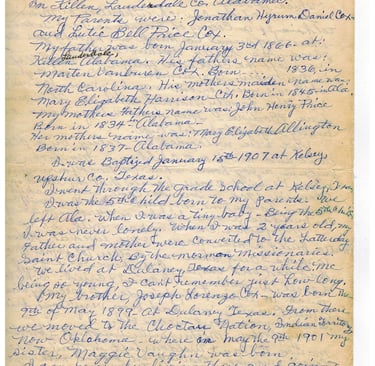 In Killen, Lauderdale Co. Alabama.
My Parents were: Jonathan Hyrum Daniel Cox
and Lutie Bell Price Cox.
My father was born January 3rd 1866 at:
Lauderdale
Killen Alabama. His fathers name was:
Marten Vanburen Cox. Born 1836, in
North Carolina. His mothers maiden name was
Mary Elizabeth Harrison Cox. Born in 1845 in Ala.
My mothers fathers name was: John Henry Price
Born in 1834 Alabama.
Her mothers name was: Mary Elizabeth Allington
Born in 1837 Alabama.
I was Baptized January 15th 1907 at Kelsey
Upshur Co. Texas.
I went through the grade school at Kelsey, Texas
I was the 5th child born to my parents. We
left Ala. when I was a tiny baby - Being the 5th child
I was never lonely. When I was 2 years old, my
father and mother were converted to the Latterday
Saint Church, By the Mormon Missionaries.
We lived at Dulaney, Texas for a while. Me
being so young, I cant remember just how long.
My brother, Joseph Lorenzo Cox - was born the
9th of May 1899 at Dulaney Texas. From there
we moved to the Choctaw Nation, Indian Territory
now Oklahoma - where on May the 9th 1901 my
sister, Maggie Vaughn was born.